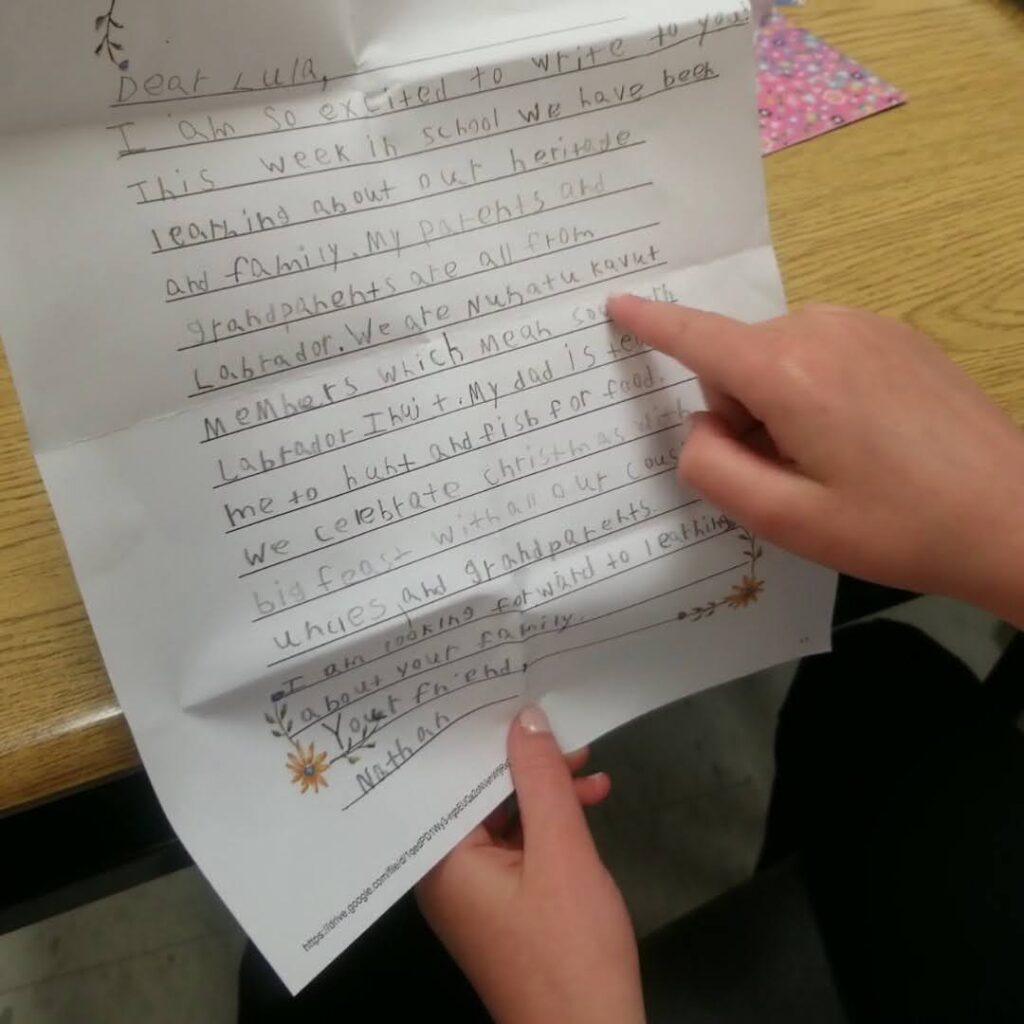 Dear Lula,
I am so excited to write to you!
This week in school we have been
learning about our heritage
and family. My parents and
grandparents are all from
Labrador. We are Nunatu kavut
Members which mean
Labrador Inuit. My dad is
me to hunt and fish for food.
We celebrate christmas with
big feast with all our
uncles, and grandparents.
I am looking forward to learning
about your family.
Your friend,
Nathan